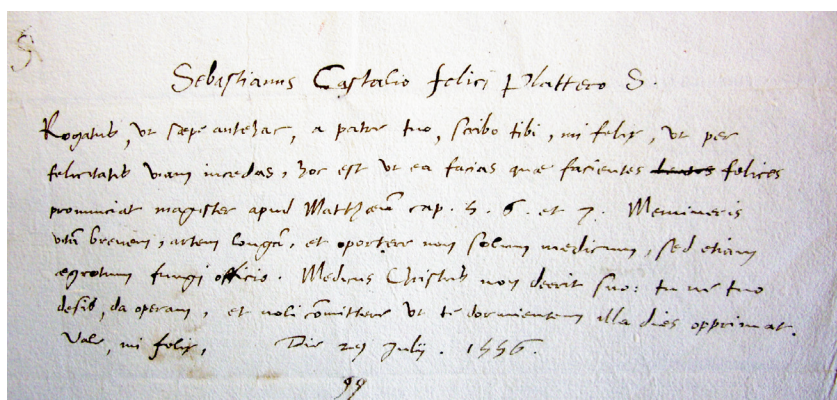 Sebastianus Castalio felici Plattero S.
Rogatus, ut sæpe antehac, a patre tuo, scribo tibi, mi felix, ut per
felicitatis viam incedas, hoc est ut ea facias quæ facientes felices
pronunciat magister apud Matthæū cap. 5. 6. et 7. Memineris
vitā brevem, artem longā, et oportere non solum medicum, sed etiam
ægrotum fungi officio. Medicus Christus non deerit suo: tu ne tuo
desis, da operam, et noli cōmittere ut te dormientem illa dies opprimat.
Vale, mi felix, Die 29 Julij. 1556.
99